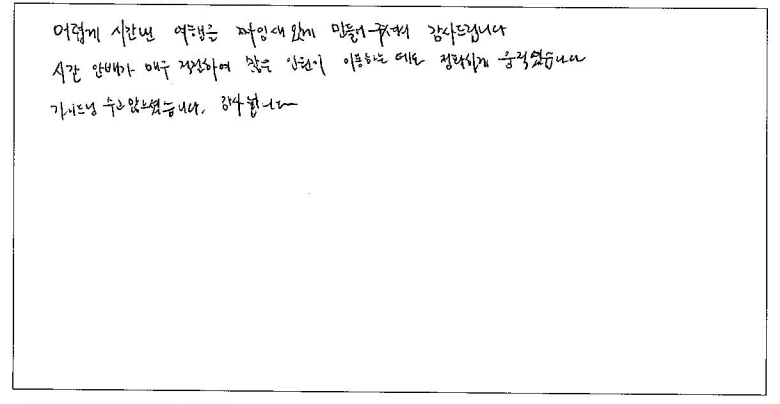 어렵게 시간낸 여행을 짜임새 있게 만들어 주셔서 감사드립니다
시간 안배가 매우 적절하여 많은 인원이 이동하는 데도 정확하게 움직였습니다
가이드님 수고 많으셨습니다. 감사합니다